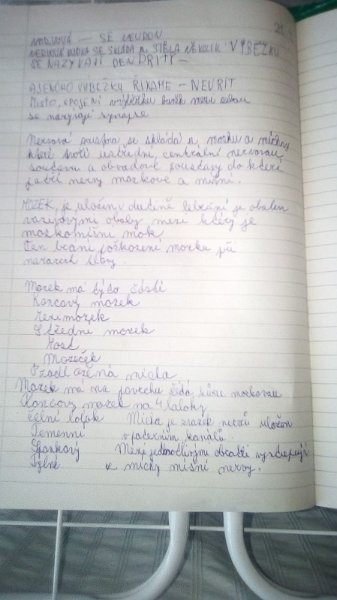 SE NEURON
NERVOVÁ BUŇKA SE SKLÁDÁ Z TĚLA NĚKOLIK VÝBĚŽKŮ
SE NAZÝVAJÍ DENDRITY
A JEDNOHO VÝBĚŽKU ŘÍKÁME - NEURIT
Místo, spojení výběžku buněk mezi sebou
se nazývají synapse
Nervová soustava se skládá z mozku a míchy
které tvoří ústřední, centrální nervovou
soustavu a obvodové soustavy do které
patří nervy mozkové a míšní.
MOZEK je uložen v dutině lebeční je obalen
vazivovými obaly mezi který je
mozkomíšní mok
Ten brání poškození mozku při
nárazech hlavy.
Mozek má tyto části
Koncový mozek
Mezimozek
Střední mozek
Most
Mozeček
Prodloužená mícha
Mozek má na povrchu šedou kůru mozkovou
Koncový mozek má 4 laloky
čelní lalok Mícha je svazek nervů uložen
Temenní v páteřním kanálu
Spánkový Mezi jednotlivými obratli vystupují
Týlní z míchy míšní nervy.